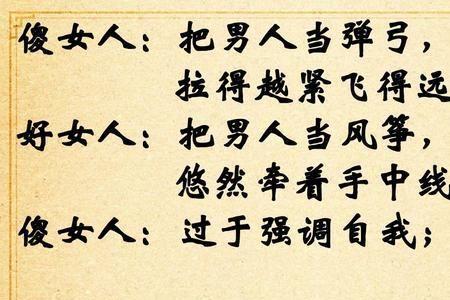 傻女人：把男人当弹弓，
拉得越紧飞得远
好女人：把男人当风筝，
悠然牵着手中线
傻女人：过于强调自我；